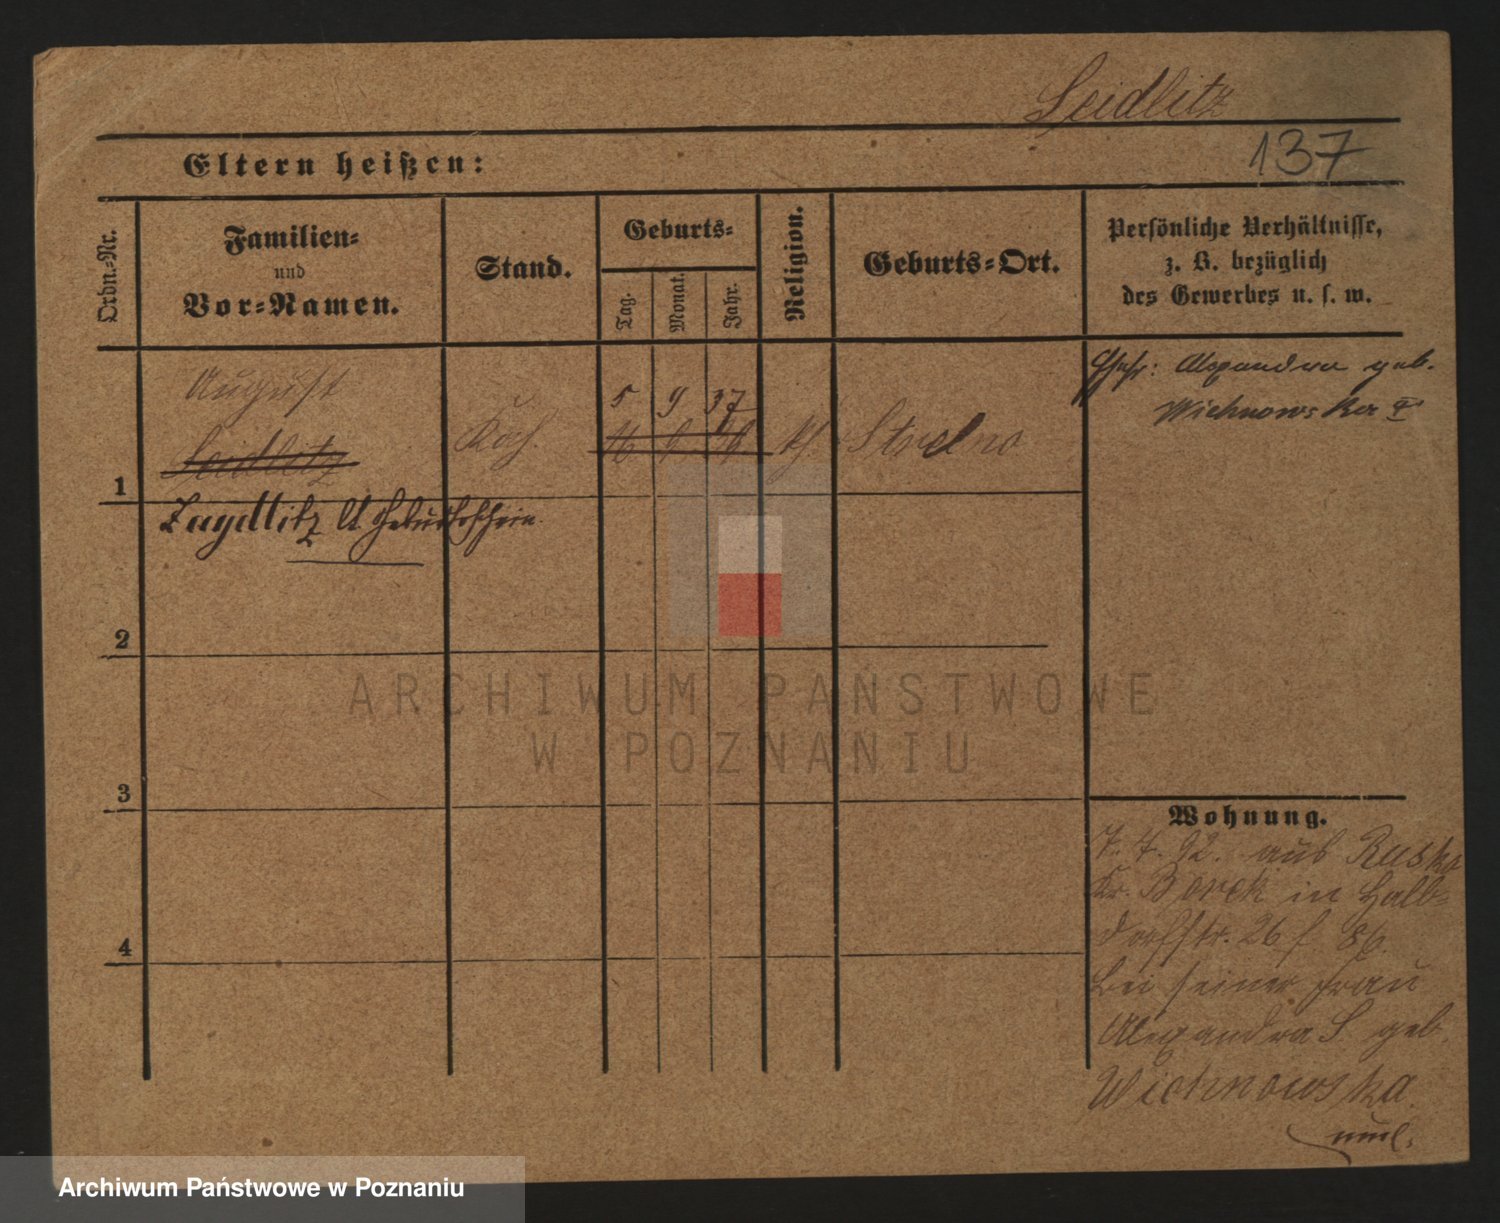 Seidlitz
137
Eltern heißen:
Ordn.-Nr.
Familien-
und
Vor-Namen.
Stand.
Geburts-
Tag.
Monat.
Jahr.
Religion.
Geburts-Ort.
Persönliche Verhältnisse,
z. B. bezüglich
des Gewerbes u. s. w.
August
Seidlitz
Koch.
5 9 37
16 9
kh.
Strelno
1
Zaydlitz lt Geburtsschein.
Ehefr: Alexandra geb.
Wichnowska
2
3
4
Wohnung.
7. 4. 92. aus Rusko
Kr. Borek in Halb-
dorfstr. 26 f. 86.
bei seiner Frau
Alexandra S. geb.
Wichnowska
ARCHIWUM PAŃSTWOWE
W POZNANIU
Archiwum Państwowe w Poznaniu